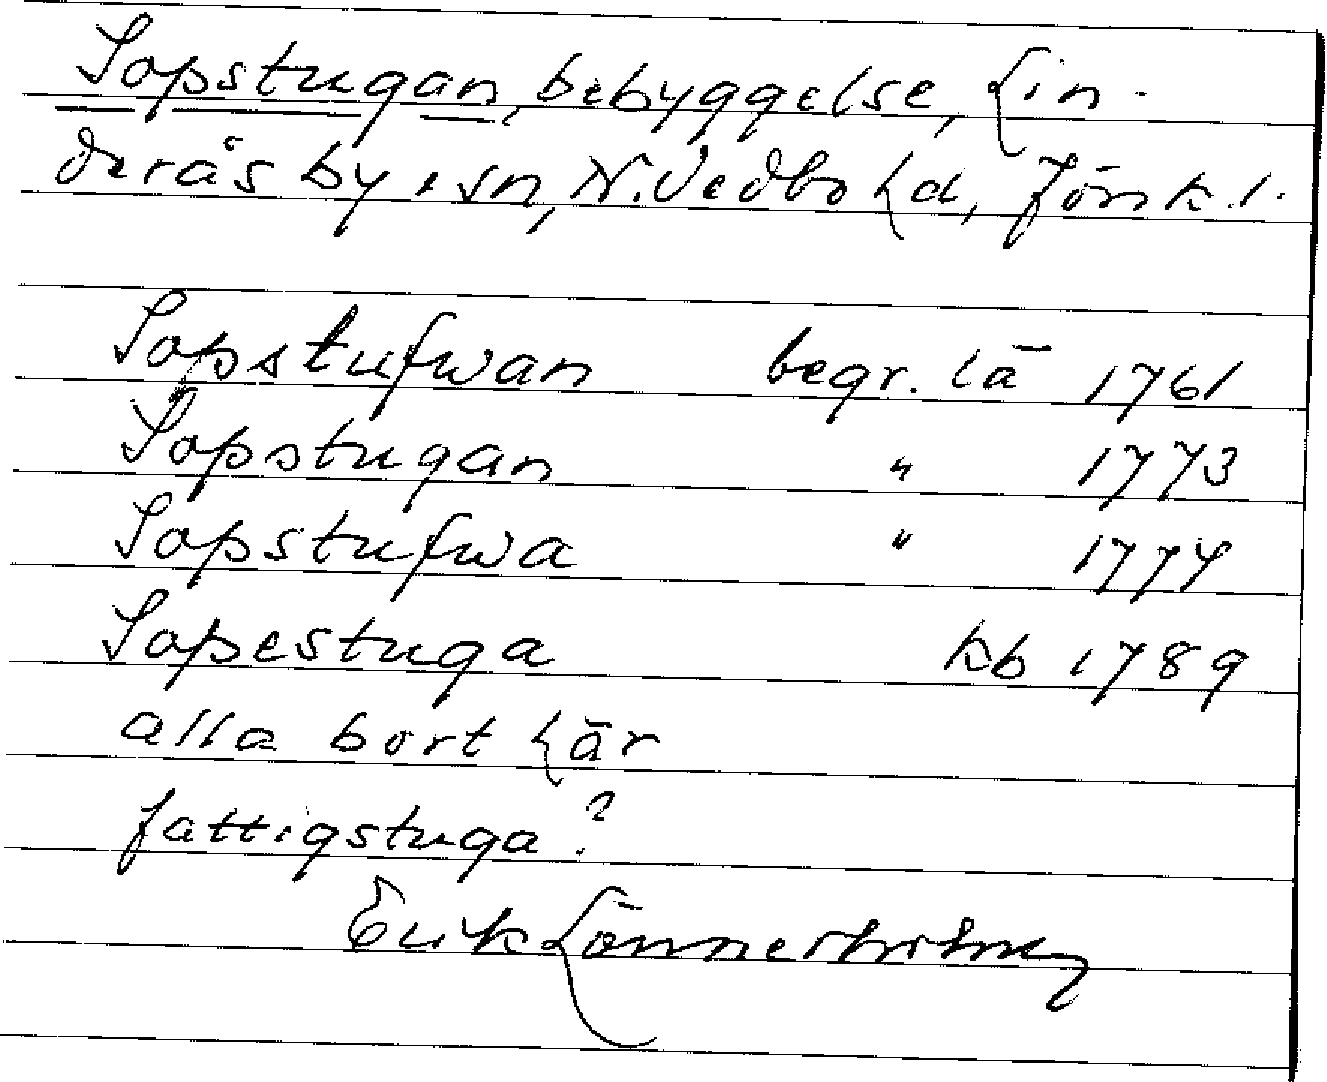 Sopstugan, bebyggelse, Lin-
derås by, sn, N. Vedbo hd, Jönk. l.
Sopstufwan begr. lä 1761
Sopstugan " 1773
Sopstufwa " 1774
Sopestuga kb 1789
alla bort här
fattigstuga?
Erik Lönnerholm